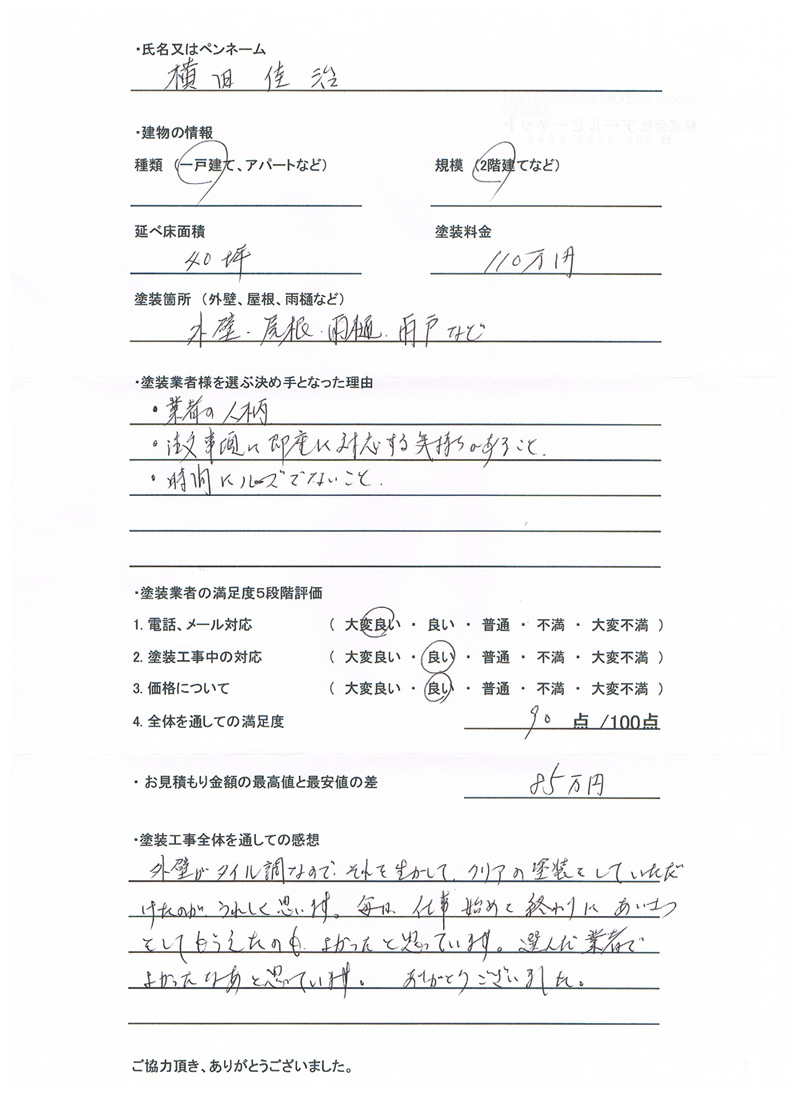 ・氏名又はペンネーム
横田 佳治
・建物の情報
種類 （一戸建て、アパートなど） 規模 （2階建てなど）
延べ床面積 塗装料金
40坪 110万円
塗装箇所 （外壁、屋根、雨樋など）
外壁．屋根．雨樋．雨戸など
・塗装業者様を選ぶ決め手となった理由
・業者の人柄
・注文事項に即座に対応する気持ちがあること．
・時間にルーズでないこと．
・塗装業者の満足度5段階評価
1. 電話、メール対応 （ 大変良い ・ 良い ・ 普通 ・ 不満 ・ 大変不満 ）
2. 塗装工事中の対応 （ 大変良い ・ 良い ・ 普通 ・ 不満 ・ 大変不満 ）
3. 価格について （ 大変良い ・ 良い ・ 普通 ・ 不満 ・ 大変不満 ）
4. 全体を通しての満足度 90 点 /100点
・ お見積もり金額の最高値と最安値の差 85万円
・塗装工事全体を通しての感想
外壁がタイル調なので、それを生かして、クリアの塗装をしていただ
けたのが、うれしく思います。毎日、仕事始めと終わりにあいさつ
をしてもらえたのも、よかったと思っています。選んだ業者で
よかったなあと思っています。 ありがとうございました。
ご協力頂き、ありがとうございました。